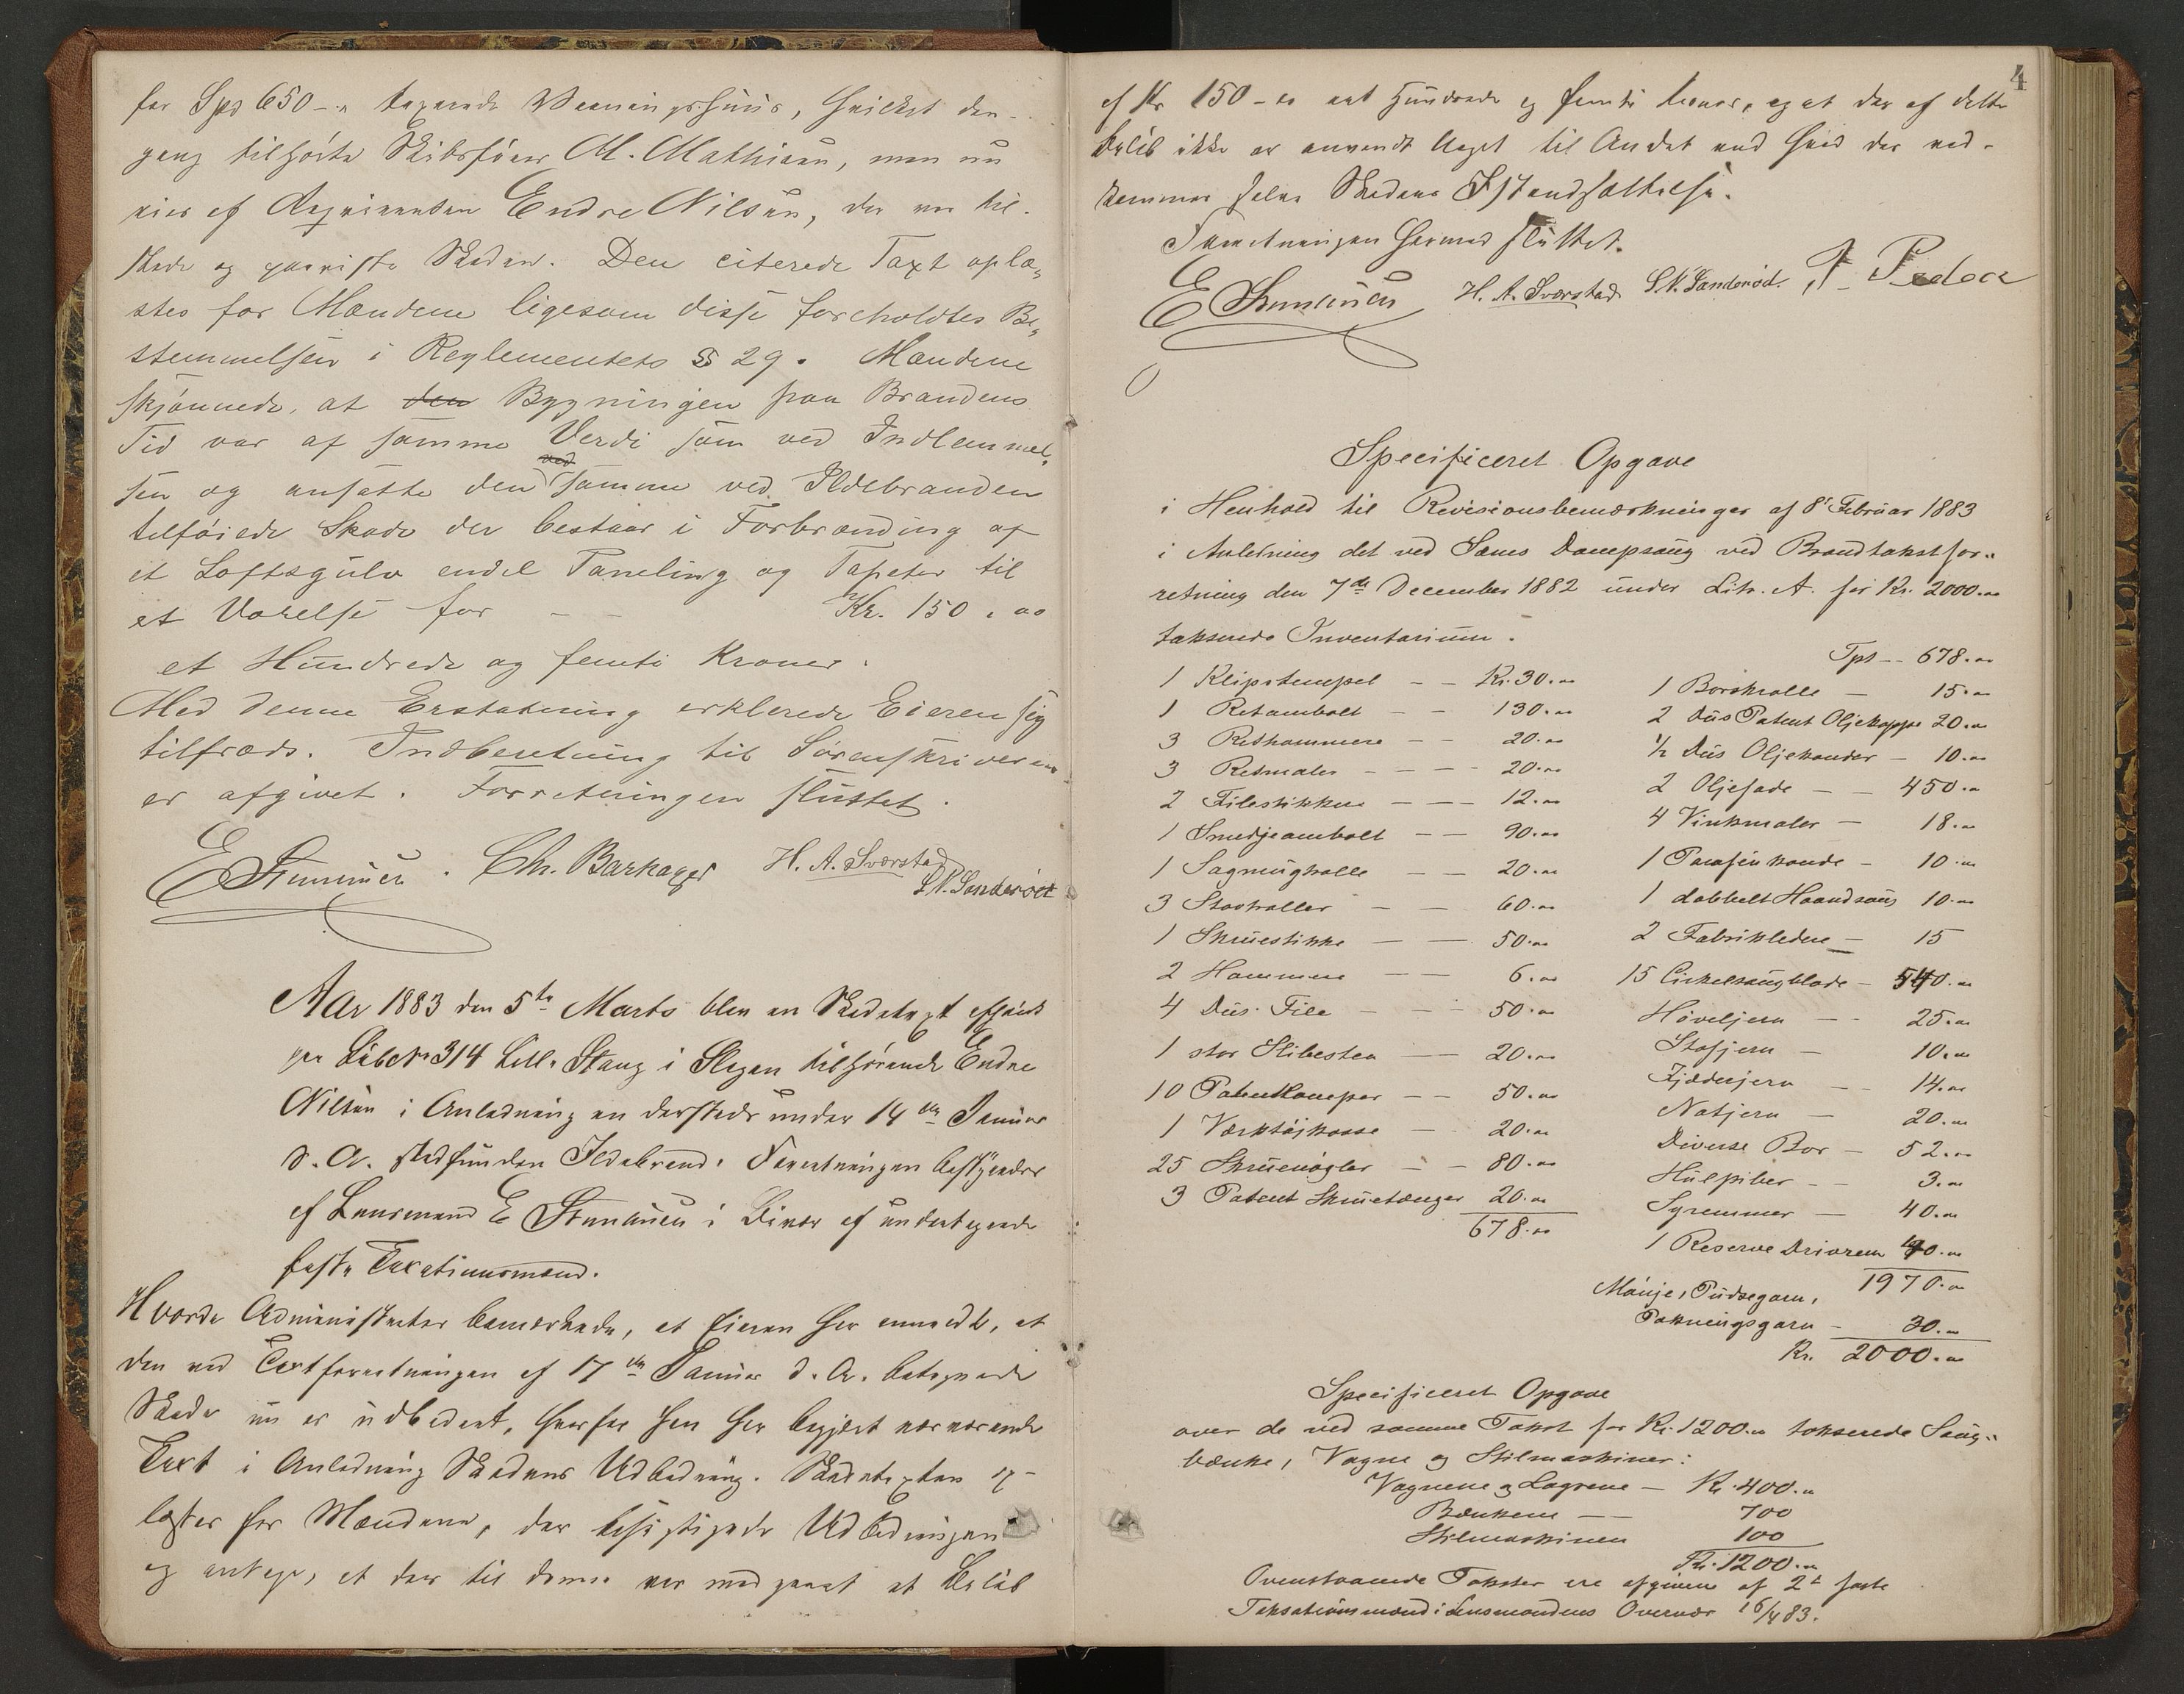 for Spd 650 - " taxerede Vaaningshuus, hvilket den-
gang tilhørte Skibsfører M. Mathisen, men nu
eies af Reqvirenten Endre Nilsen, der var til-
stede og paaviste Skaden. Den citerede Taxt oplæ„
stes for Mændene ligesom disse foreholdtes Be„
stemmelsen i Reglementets § 29. Mændene
skjønnede, at den Bygningen paa Brandens
Tid var af samme Verdi som ved Indlemmel„
sen og ansatte den ved samme ved Ildebranden
tilføiede Skade der bestaar i Forbrænding af
et Loftsgulv endel Paneling og Tapeter til
et Værelse for - - Kr. 150,00
et Hundrede og femti Kroner.
Med denne Erstatning erklerede Eieren sig
tilfreds. Indberetning til Sorenskriveren
er afgivet. Forretningen sluttet.
Chr. Barkager H. A. Sværstad
S. N. Sanderød
Aar 1883 den 5te Marts blev en Skadetaxt afholdt
paa Løb No 314 Lille Stang i Slagen tilhørende Endre
Nilsen i Anledning en dersteds under 14de Januar
d. A. stedfunden Ildebrand. Forretningen bestyredes
af Lensmand E i Linær af undertegnede
faste Taxationsmænd.
Hvorda Administrator bemærkede, at Eieren har anmeldt, at
den ved Taxtforretningen af 17de Januar d. A. betegnede
Skade nu er udbedret, hvorfor han har begjært nærværende
Taxt i Anledning Skadens Udbedring. Skadetaxten op-
læstes for Mændene, der besigtigede Udbedringen
og antog, at der til denne var medgaaet et Beløb
4
af Kr 150 - et Hundrede og femti kroner, og at der af dette
Beløb ikke er anvendt Noget til Andet end hvad der ved-
kommer selve Skadens Istandsættelse.
Forretningen hermed sluttet.
H. A. Sværstad S. N. Sanderød
Specificeret Opgave
i Henhold til Revisionsbemærkninger af 8de Februar 1883
i Anledning det ved Sæms Dampsaug ved Brandtakstfor„
retning den 7de December 1882 under Litr. A. for Kr. 2000.00
takserede Inventarium.
1 Klipstempel - - Kr. 30.00
1 Retambolt - - 130.00
3 Rethammere - - 20.00
3 Retmaler - - - 20.00
2 Filestikker - - - 12.00
1 Smedjeambolt - - 90.00
1 Sagmugkalle - - 20.00
3 Stavkaller - - 60.00
1 Skruestikke - - 50.00
2 Hammere - - 6.00
4 Dus. File - - - 50.00
1 stor Slibesten - 20.00
10 Patentlamper - - 50.00
1 Værktøjkasse - 20.00
25 Skruenøgler - - 80.00
3 Patent Skruetænger 20.00
678.00
Tpt - - 678.00
1 Borskralle - 15.00
2 Dus Patent Oljekoppe 20.00
1/2 Dus Oljekander - 10.00
2 Oljefade - - 450.00
4 Vinkmaler - 18.00
1 Parafinkande - 10.00
1 dobbelt Haandsaug 10.00
2 Fabrikledere - 15
15 Cirkelsaugblade - 540.00
Høveljern - - 25.00
Stafjern - 10.00
Fjæderjern - - 14.00
Notjern - 20.00
Diverse Bor - 52.00
Hulpiber - - 3.00
Syremmer - 40.00
1 Reserve Drivrem 40.00
1970.00
Mønje, Pudsegarn,
Pakningsgarn - 30.00
Kr. 2000.00
Specificeret Opgave
over de ved samme Takst for Kr. 1200.00 takserede Saug„
bænke, Vogne og Stilmaskiner:
Vognene og Lagrene - Kr. 400.00
Bænkene - - 700
Stilmaskinen 100
Kr. 1200.00
Ovenstaaende Takster ere afgivne af 2de faste
Taksationsmænd i Lensmandens Overvær 16/4 83.